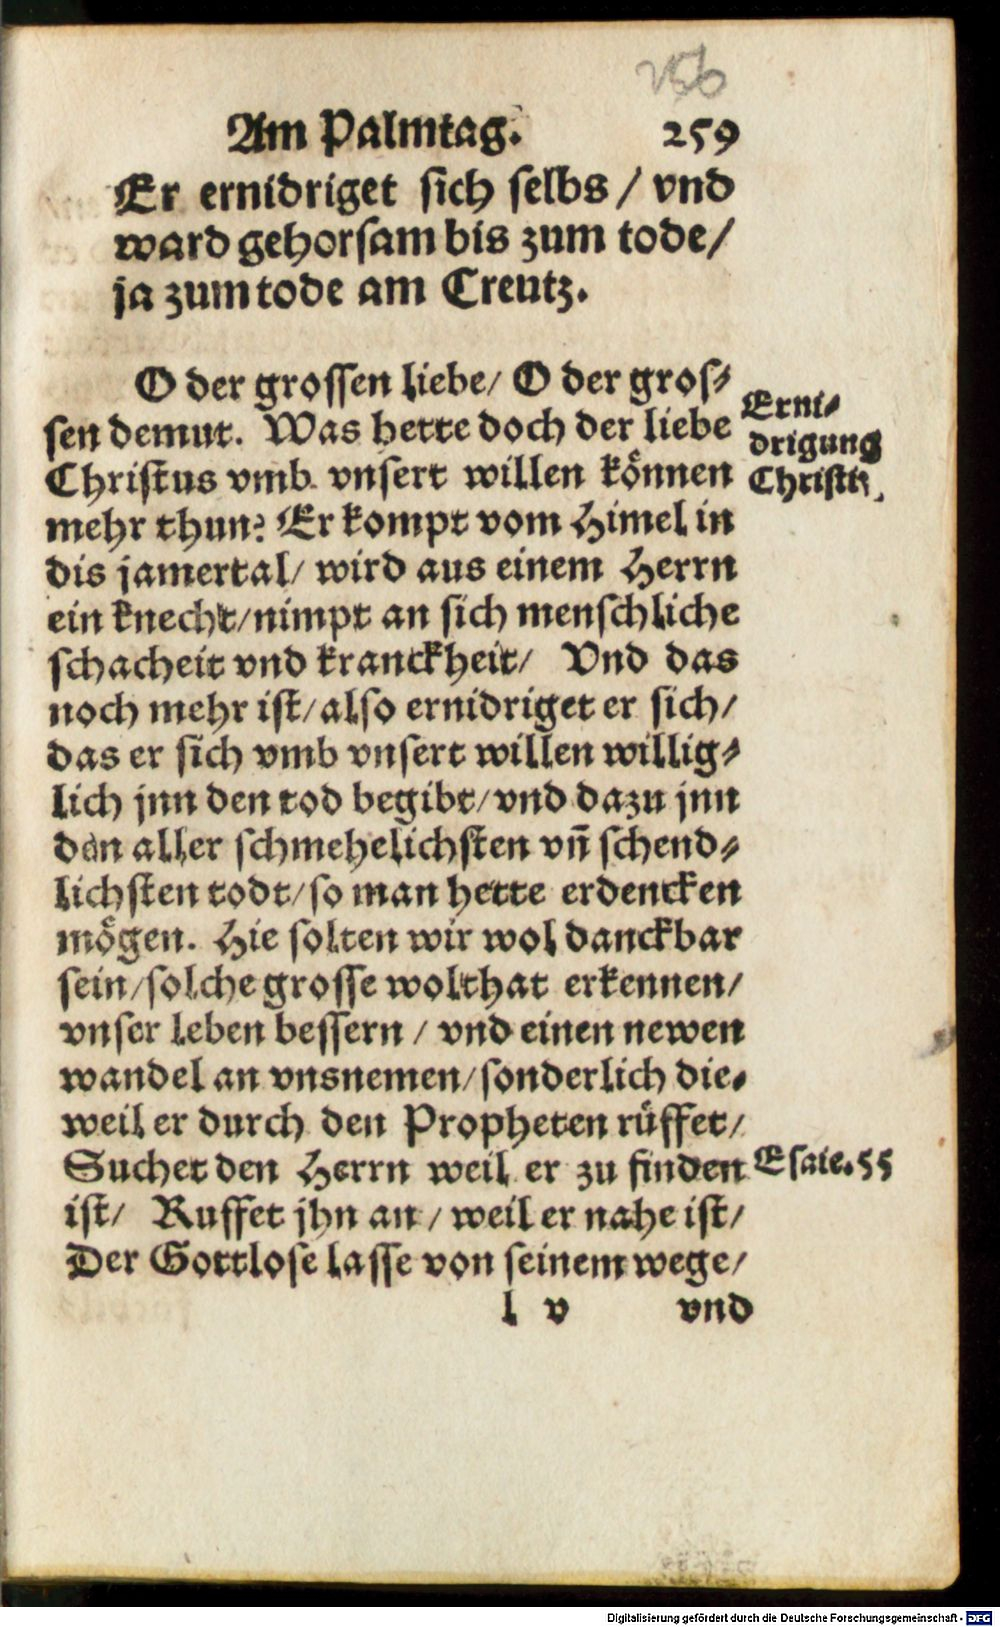 256
Am Palmtag. 259
Er ernidriget sich selbs / vnd
ward gehorsam bis zum tode /
ja zum tode am Creutz.
O der grossen liebe / O der gros⸗
sen demut. Was hette doch der liebe
Christus vmb vnsert willen können
mehr thun? Er kompt vom Himel in
dis jamertal / wird aus einem Herrn
ein knecht / nimpt an sich menschliche
schacheit vnd kranckheit / Vnd das
noch mehr ist / also ernidriget er sich /
das er sich vmb vnsert willen willig⸗
lich jnn den tod begibt / vnd dazu jnn
den aller schmehelichsten vn̄ schend⸗
lichsten todt / so man hette erdencken
mögen. Hie solten wir wol danckbar
sein / solche grosse wolthat erkennen /
vnser leben bessern / vnd einen newen
wandel an vns nemen / sonderlich die⸗
weil er durch den Propheten rüffet /
Suchet den Herrn weil er zu finden
ist / Ruffet jhn an / weil er nahe ist /
Der Gottlose lasse von seinem wege /
l v vnd
Erni⸗
drigung
Christi.
Esaie. 55
Digitalisierung gefördert durch die Deutsche Forschungsgemeinschaft - DFG